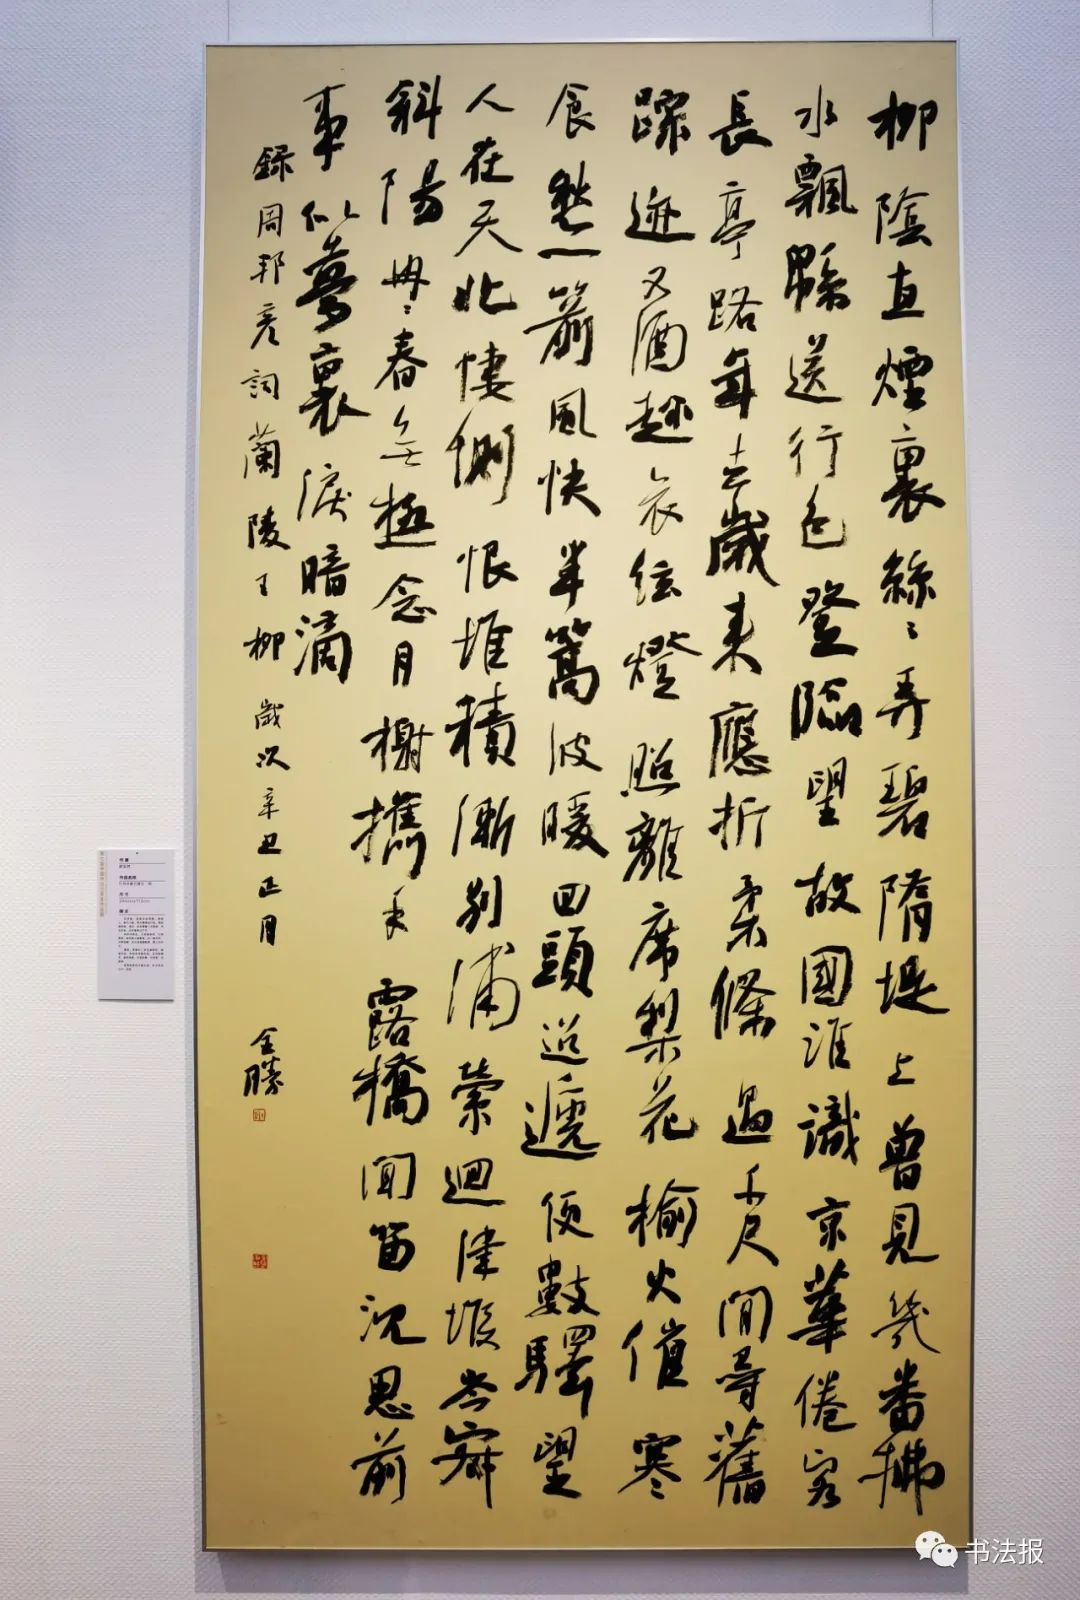 柳陰直煙裏絲〻弄碧隋堤上曾見幾番拂
水飄緜送行色登臨望故國誰識京華倦客
長亭路年去歲來應折柔條過千尺閒尋舊
蹤迹又酒趁哀絃燈照離席梨花榆火催寒
食愁一箭風快半篙波暖回頭迢遞便數驛望
人在天北悽惻恨堆積漸別浦縈迴津堠岑寂
斜陽冉〻春無極念月榭攜手露橋聞笛沉思前
事似夢裏淚暗滴
錄周邦彥詞蘭陵王柳歲次辛丑正月
全勝
书法报